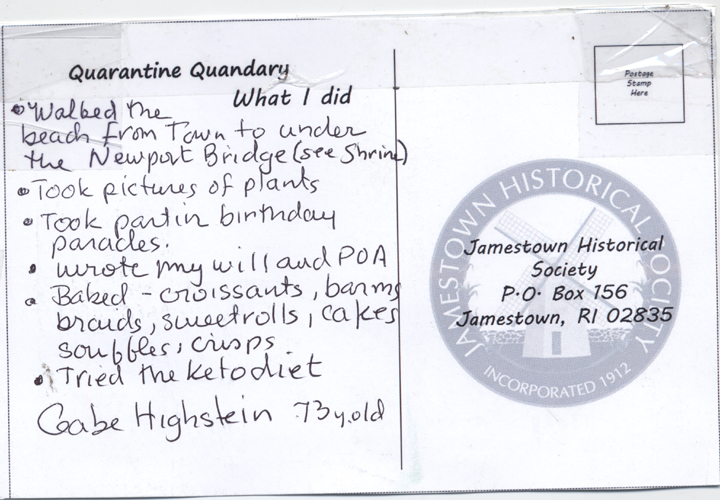 Quarantine Quandary
What I did
• Walked the
beach from Town to under
the Newport Bridge (see Shrine)
• Took pictures of plants
• Took part in birthday
parades.
• wrote my will and POA
• Baked - croissants, barms
braids, sweetrolls, cakes
souffles, crisps.
• Tried the keto diet
Gabe Highstein 73 y.old
Postage
Stamp
Here
JAMESTOWN HISTORICAL SOCIETY
Jamestown Historical
Society
P.O. Box 156
Jamestown, RI 02835
INCORPORATED 1912